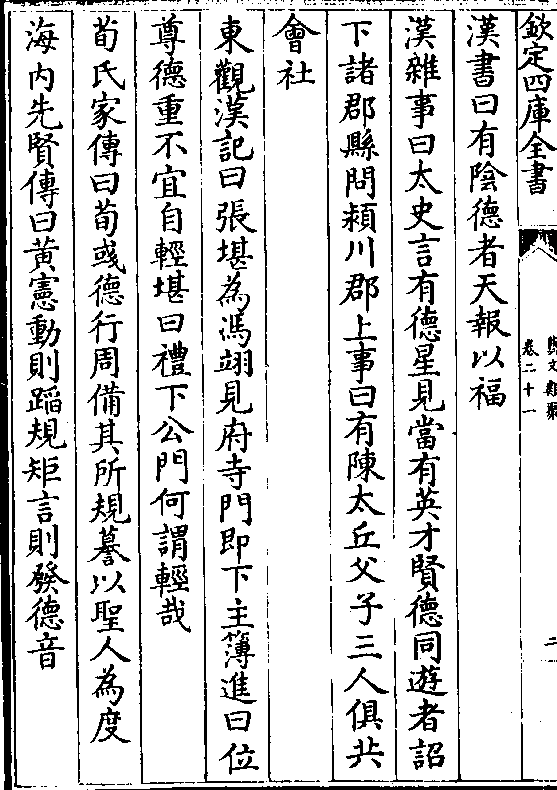 欽定四庫全書
藝文類聚
卷二十一
二
漢書曰有陰德者天報以福
漢雜事曰太史言有德星見當有英才賢德同遊者詔
下諸郡縣問潁川郡上事曰有陳太丘父子三人俱共
會社
東觀漢記曰張堪為馮翊見府寺門即下主簿進曰位
尊德重不宜自輕堪曰禮下公門何謂輕哉
荀氏家傳曰荀彧德行周備其所規摹以聖人為度
海內先賢傳曰黃憲動則蹈規矩言則發德音